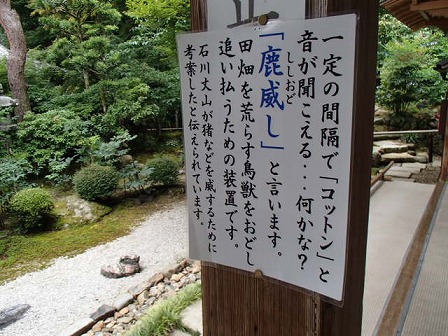 一定の間隔で「コットン」と
音が聞こえる・・・何かな？
「鹿威し」と言います。
ししおど
田畑を荒らす鳥獣をおどし
追い払うための装置です。
石川丈山が猪などを威するために
考案したと伝えられています。